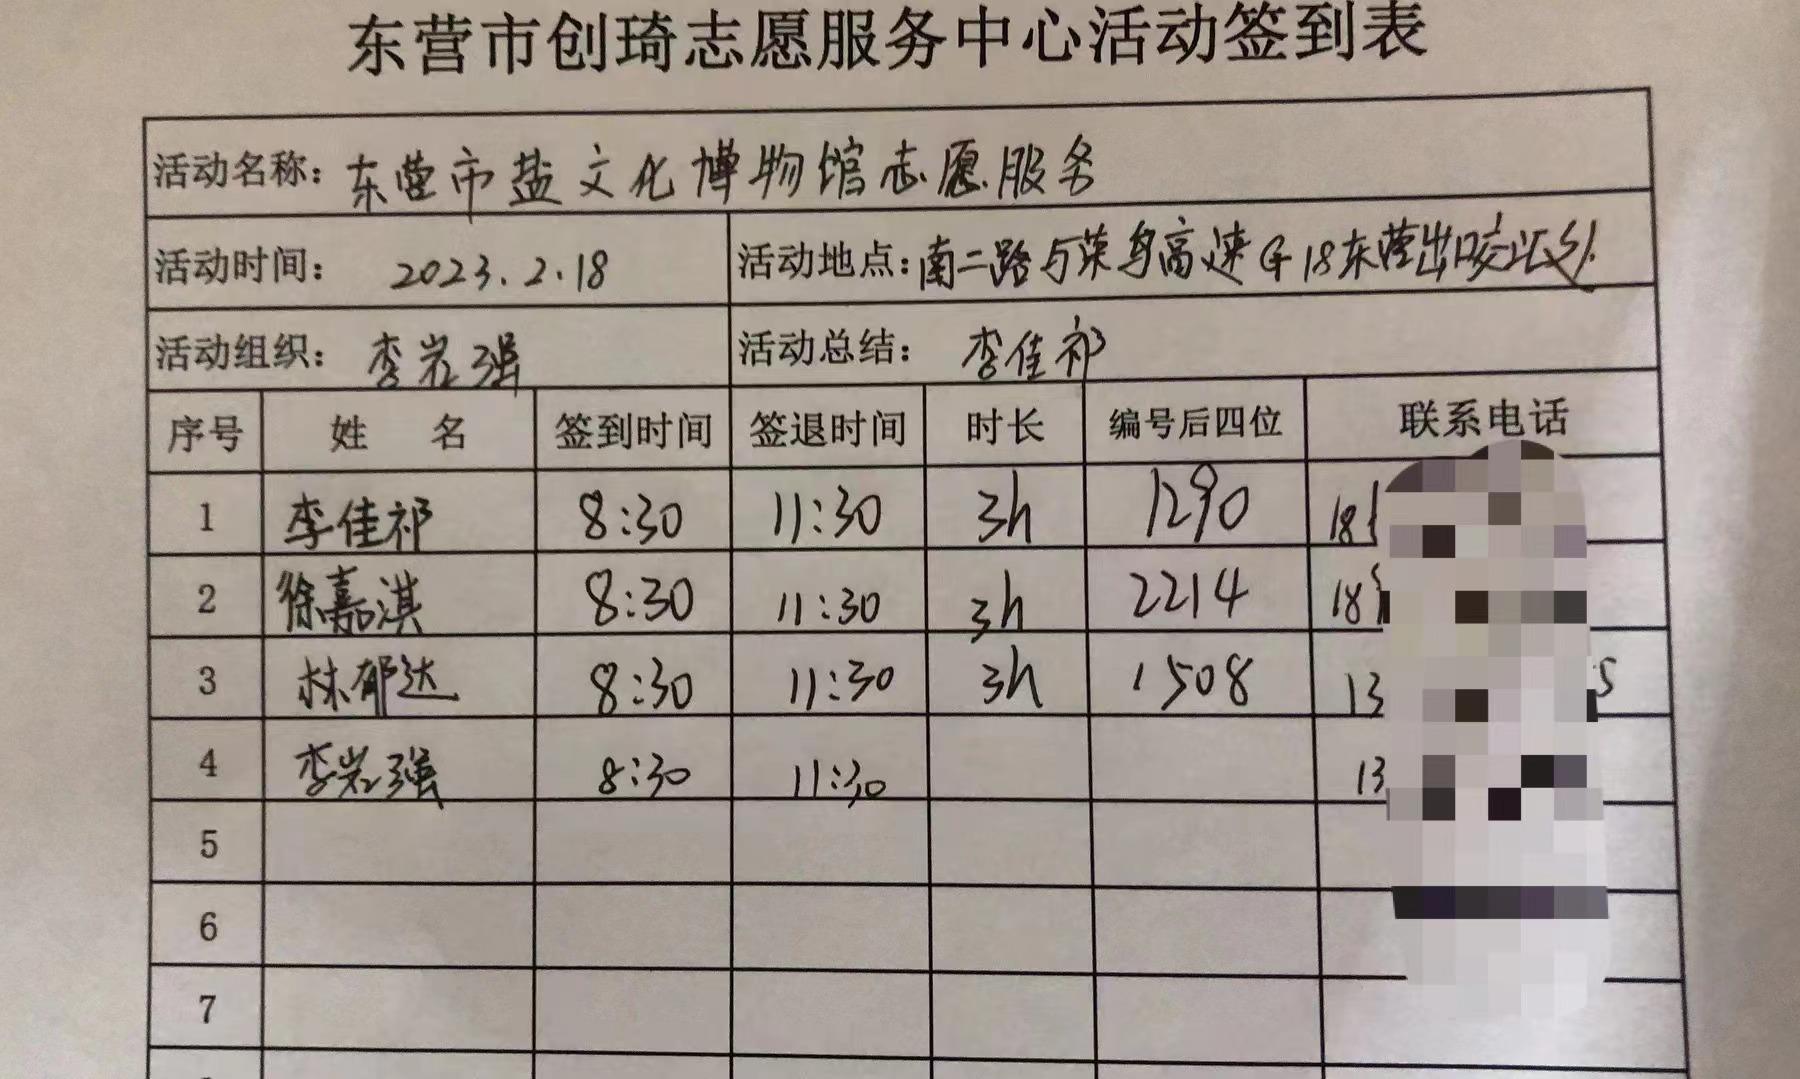 东营市创琦志愿服务中心活动签到表
活动名称：东营市盐文化博物馆志愿服务
活动时间： 2023.2.18 活动地点：南二路与荣乌高速G18东营出口交汇处
活动组织： 李岩强 活动总结： 李佳祁
序号 姓 名 签到时间 签退时间 时长 编号后四位 联系电话
1 李佳祁 8:30 11:30 3h 1290 18
2 徐嘉淇 8:30 11:30 3h 2214 18
3 林郁达 8:30 11:30 3h 1508 13 5
4 李岩强 8:30 11:30 13
5
6
7